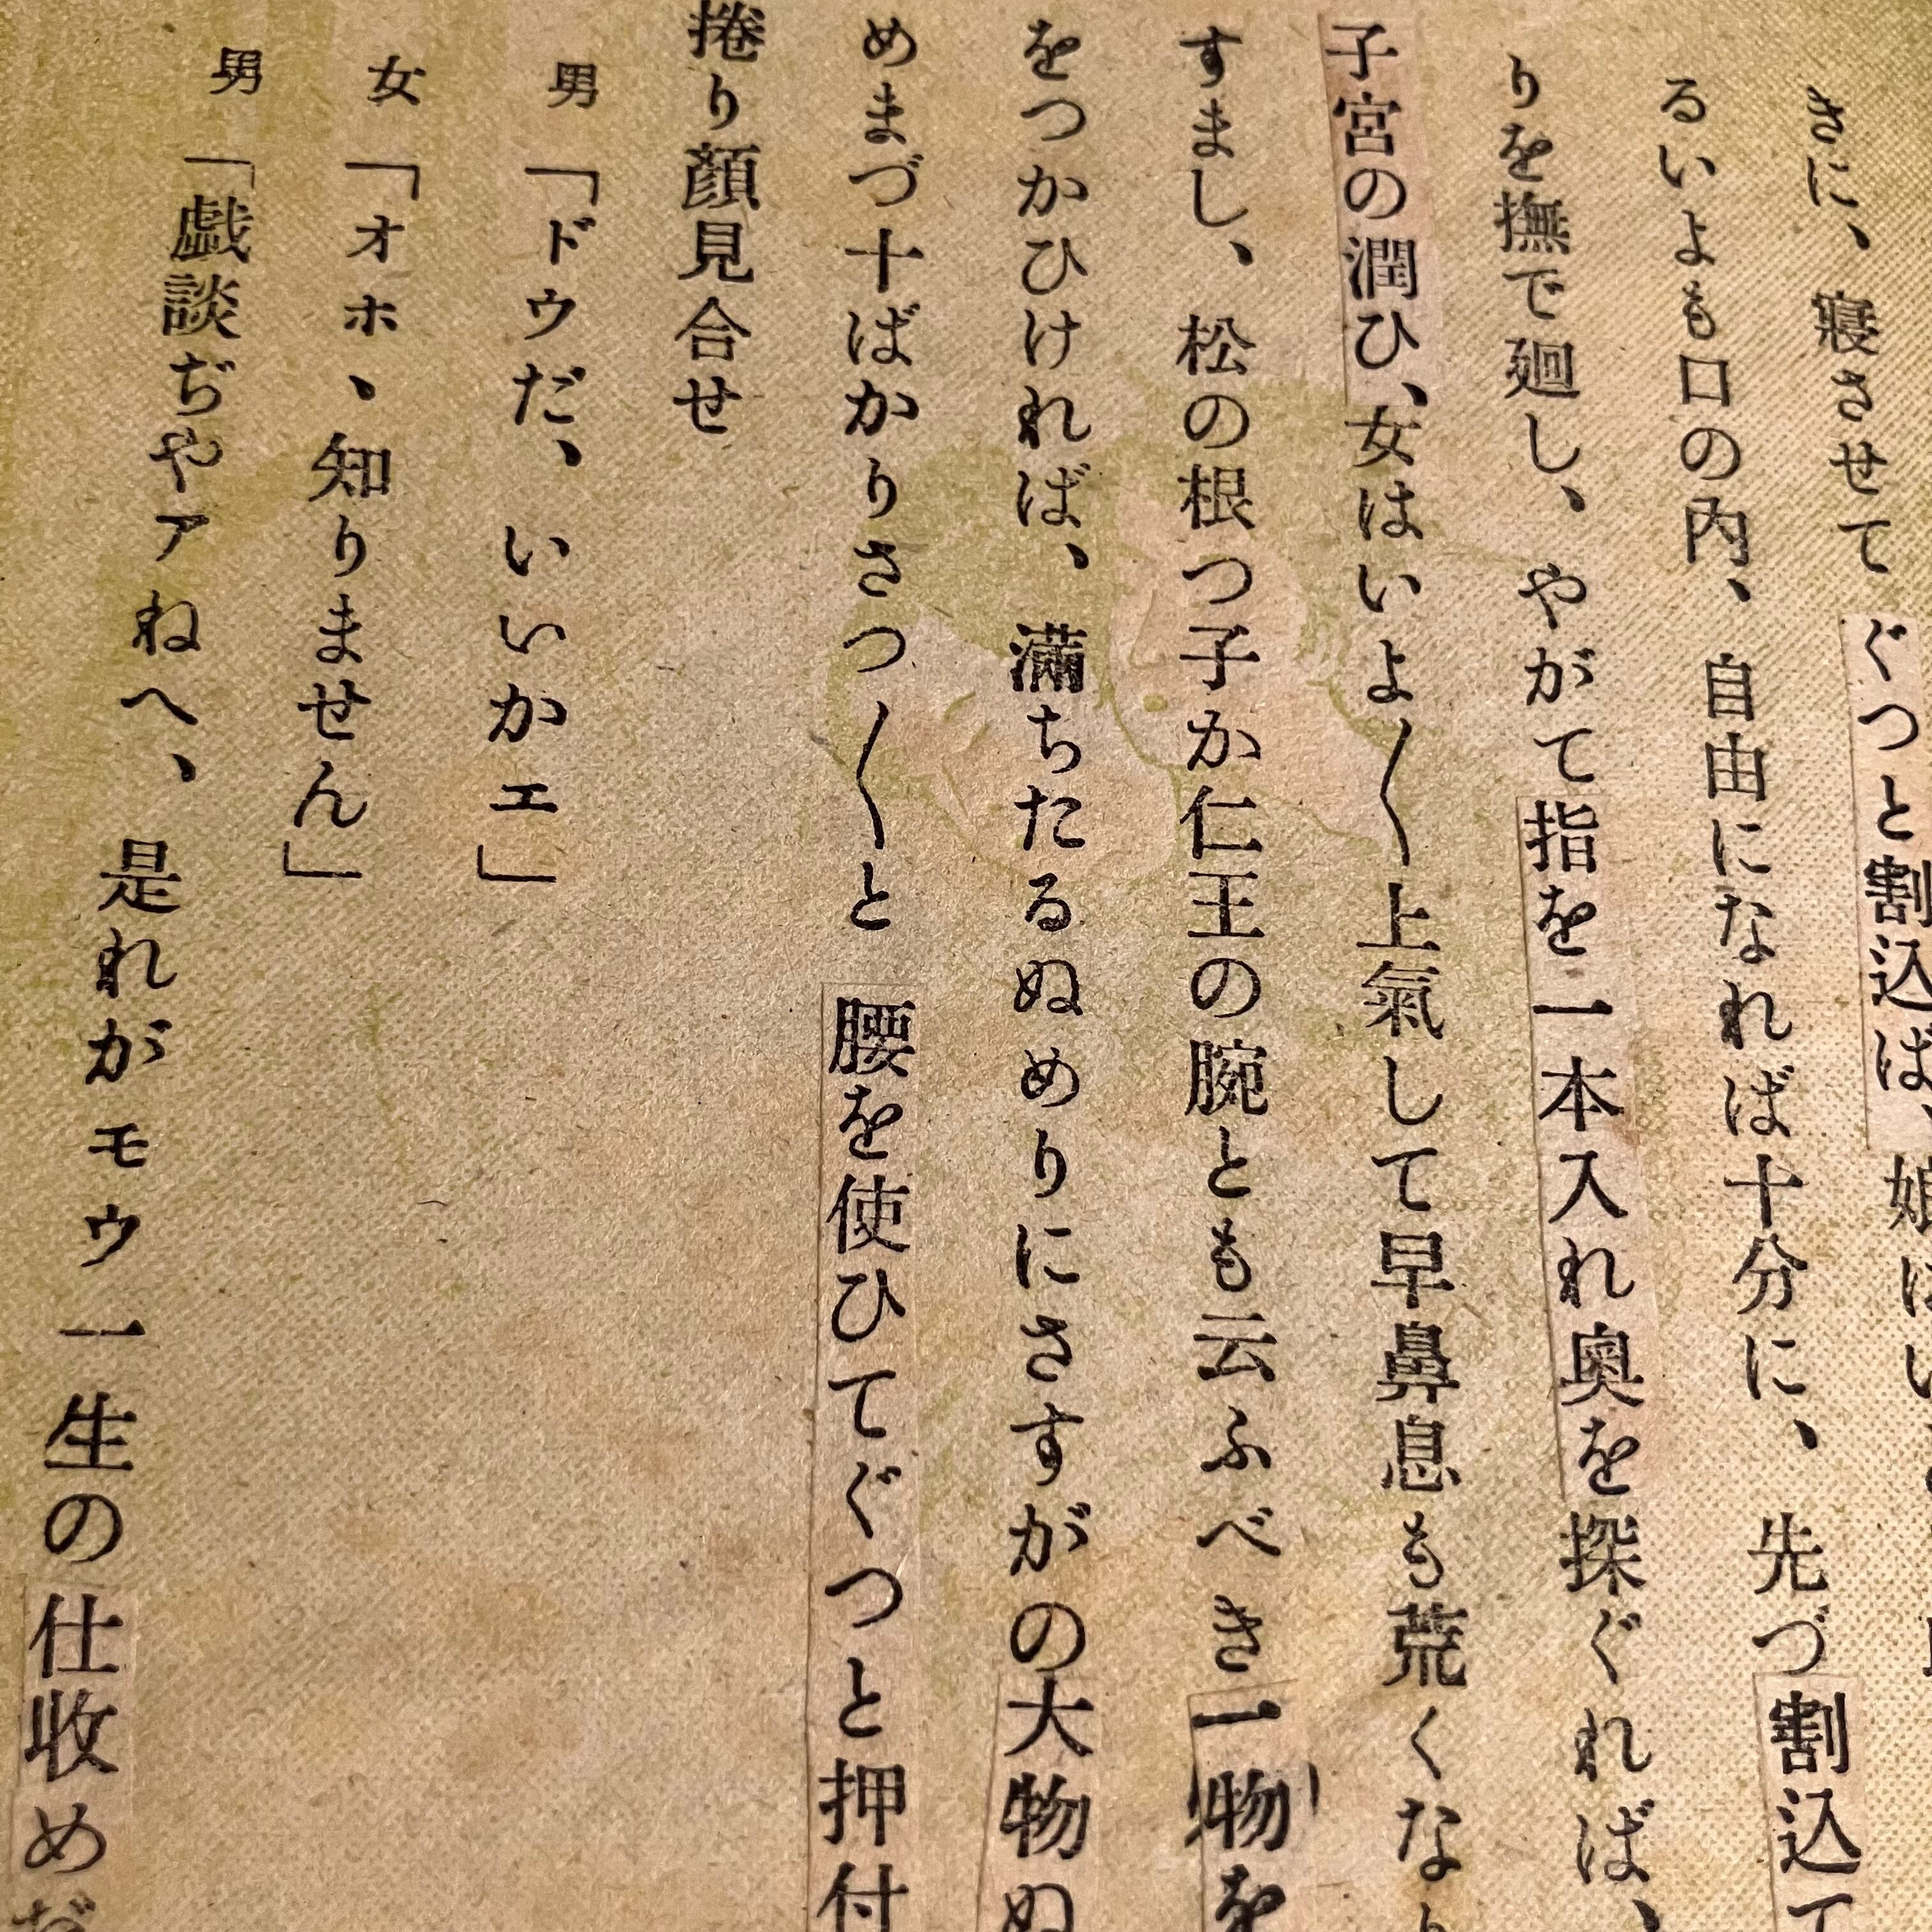 きに、寝させてぐつと割込ば、娘はい
るいよも口の内、自由になれば十分に、先づ割込て
りを撫で廻し、やがて指を一本入れ奥を探ぐれば、
子宮の潤ひ、女はいよ〳〵上氣して早鼻息も荒くなり
すまし、松の根つ子か仁王の腕とも云ふべき一物を
をつかひければ、滿ちたるぬめりにさすがの大物ぬ
めまづ十ばかりさつ〳〵と腰を使ひてぐつと押付
捲り顔見合せ
男「ドウだ、いいかエ」
女「オホ、知りません」
男「戯談ぢやアねへ、是れがモウ一生の仕收めだ